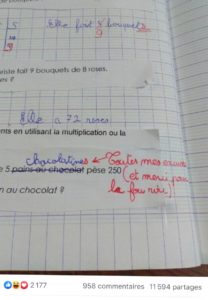 5 Elle fait 8 bouquets
9 9
riste fait 9 bouquets de 8 roses.
es ?
Elle a 72 roses
nts en utilisant la multiplication ou la
chocolatines ← Toutes mes excuses
e 5 pains au chocolat pèse 250 (et merci pour
n au chocolat ? le fou rire)
2 177 958 commentaires 11 594 partages